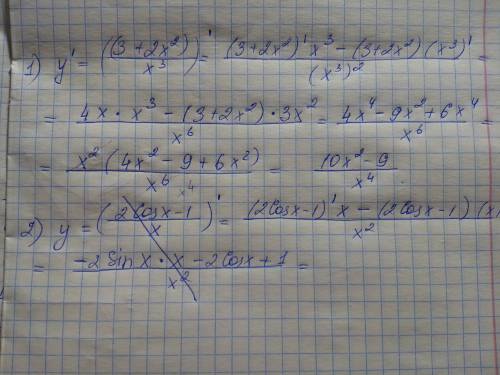 1) y' = ((3+2x²)/x³)' = ((3+2x²)'x³ - (3+2x²)(x³)')/(x³)² =
= (4x · x³ - (3+2x²) · 3x²)/x⁶ = (4x⁴ - 9x² + 6x⁴)/x⁶ =
= x²(4x² - 9 + 6x²)/x⁶ x⁴ = (10x² - 9)/x⁴.
2) y = ((2cosx-1)/x)' = ((2cosx-1)'x - (2cosx-1)(x)/x²
= (-2sinx · x - 2cosx + 1)/x² =